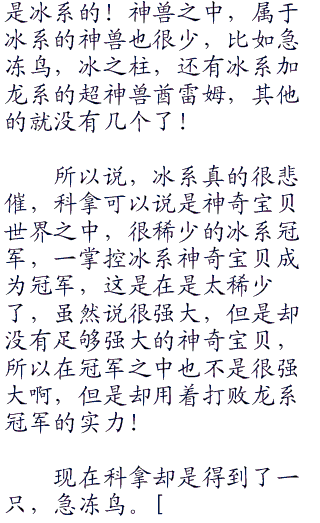 是冰系的！神兽之中，属于
冰系的神兽也很少，比如急
冻鸟，冰之柱，还有冰系加
龙系的超神兽酋雷姆，其他
的就没有几个了！
所以说，冰系真的很悲
催，科拿可以说是神奇宝贝
世界之中，很稀少的冰系冠
军，一掌控冰系神奇宝贝成
为冠军，这是在是太稀少
了，虽然说很强大，但是却
没有足够强大的神奇宝贝，
所以在冠军之中也不是很强
大啊，但是却用着打败龙系
冠军的实力！
现在科拿却是得到了一
只，急冻鸟。[